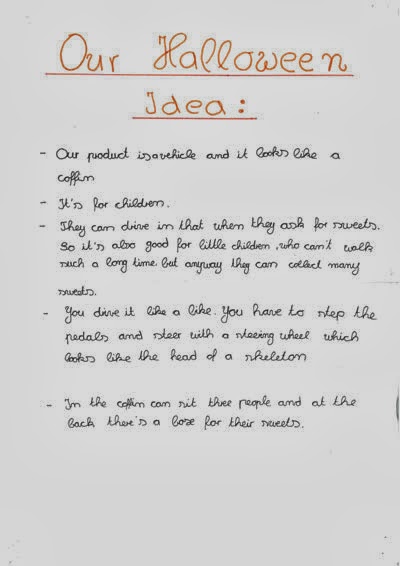 Our Halloween
Idea:
- Our product is a vehicle and it looks like a
coffin
- It's for children.
- They can drive in that when they ask for sweets.
So it's also good for little children, who can't walk
such a long time, but anyway they can collect many
sweets.
- You drive it like a like. You have to step the
pedals and steer with a steeing wheel which
looks like the head of a skeleton
- In the coffin can sit three people and at the
back there's a boxe for their sweets.